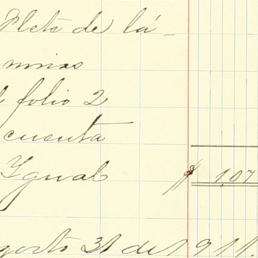 Flete de lá-
minas
folio 2
cuenta
Ygual $ 1,07
agosto 31 de 1911.